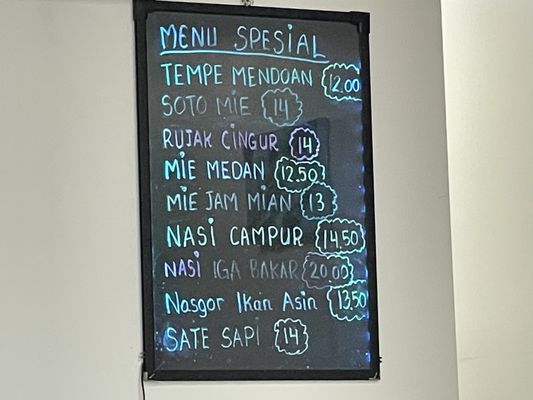 MENU SPESIAL
TEMPE MENDOAN 12.00
SOTO MIE 14
RUJAK CINGUR 14
MIE MEDAN 12.50
MIE JAM MIAN 13
NASI CAMPUR 14.50
NASI IGA BAKAR 20.00
Nasgor Ikan Asin 13.50
SATE SAPI 14